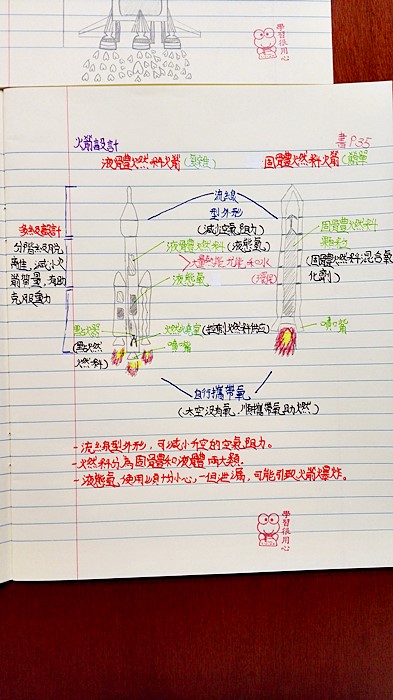 學習很用心
火箭設計
書P35
液體燃料火箭(複雜)
固體燃料火箭(簡單)
流線
型外形
(減小空氣阻力)
多級設計
分階段脫
離性,減小火
箭質量,有助
克服重力
液體燃料(液態氫)
大量熱能,光能和水
液態氧
(環保)
固體燃料
顆粒
(固體燃料混合氧
化劑)
點火器
(點燃
燃料)
燃燒室(控制燃料供應)
噴嘴
噴嘴
自行攜帶氧
(太空沒有氧,須攜帶氧助燃)
-流線型外形,可減小升空的空氣阻力。
-燃料分為固體和液體兩大類。
-液態氧使用須十分小心,一但泄漏,可能引致火箭爆炸。
學習很用心